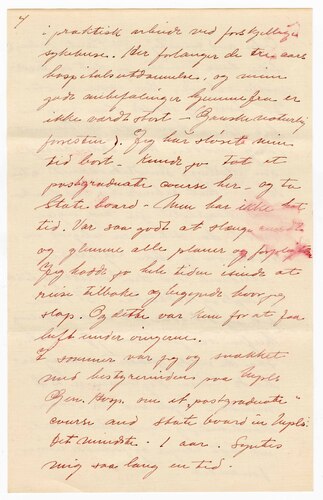 4
i praktisk arbeide ved forskjellige
sykehuse. Her forlanger de tre aars
hospitalsutdannelse, og mine
gode anbefalinger hjemmefra er
ikke værdt stort — Ganske naturlig
forresten). Jeg har sløset min
tid bort. Kunde jo tat et
postgraduate course her — og ta
State board — Men har ikke hat
tid. Var saa godt at slænge
og glemme alle planer og
Jeg hadde jo hele tiden isinde at
reise tilbake og begynde hvor jeg
slap. Og dette var kun for at faa
luft under vingerne.
I sommer var jeg og snakket
med bestyrerinden paa Mpls
Gen. Hosp. om et "postgraduate"
course and state board in Mpls.
Det mindste 1 aar. Syntes
mig saa lang en tid.